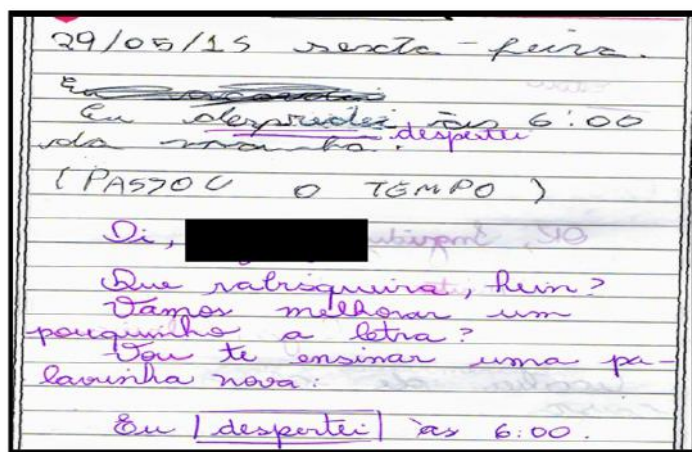 29/05/15 sexta-feira.
Eu
Eu despridei às 6:00
despertei
da manhã.
(PASSOU O TEMPO)
Oi,
Que rabisqueira, hein?
Vamos melhorar um
pouquinho a letra?
Vou te ensinar uma pa-
lavrinha nova:
Eu despertei às 6:00.